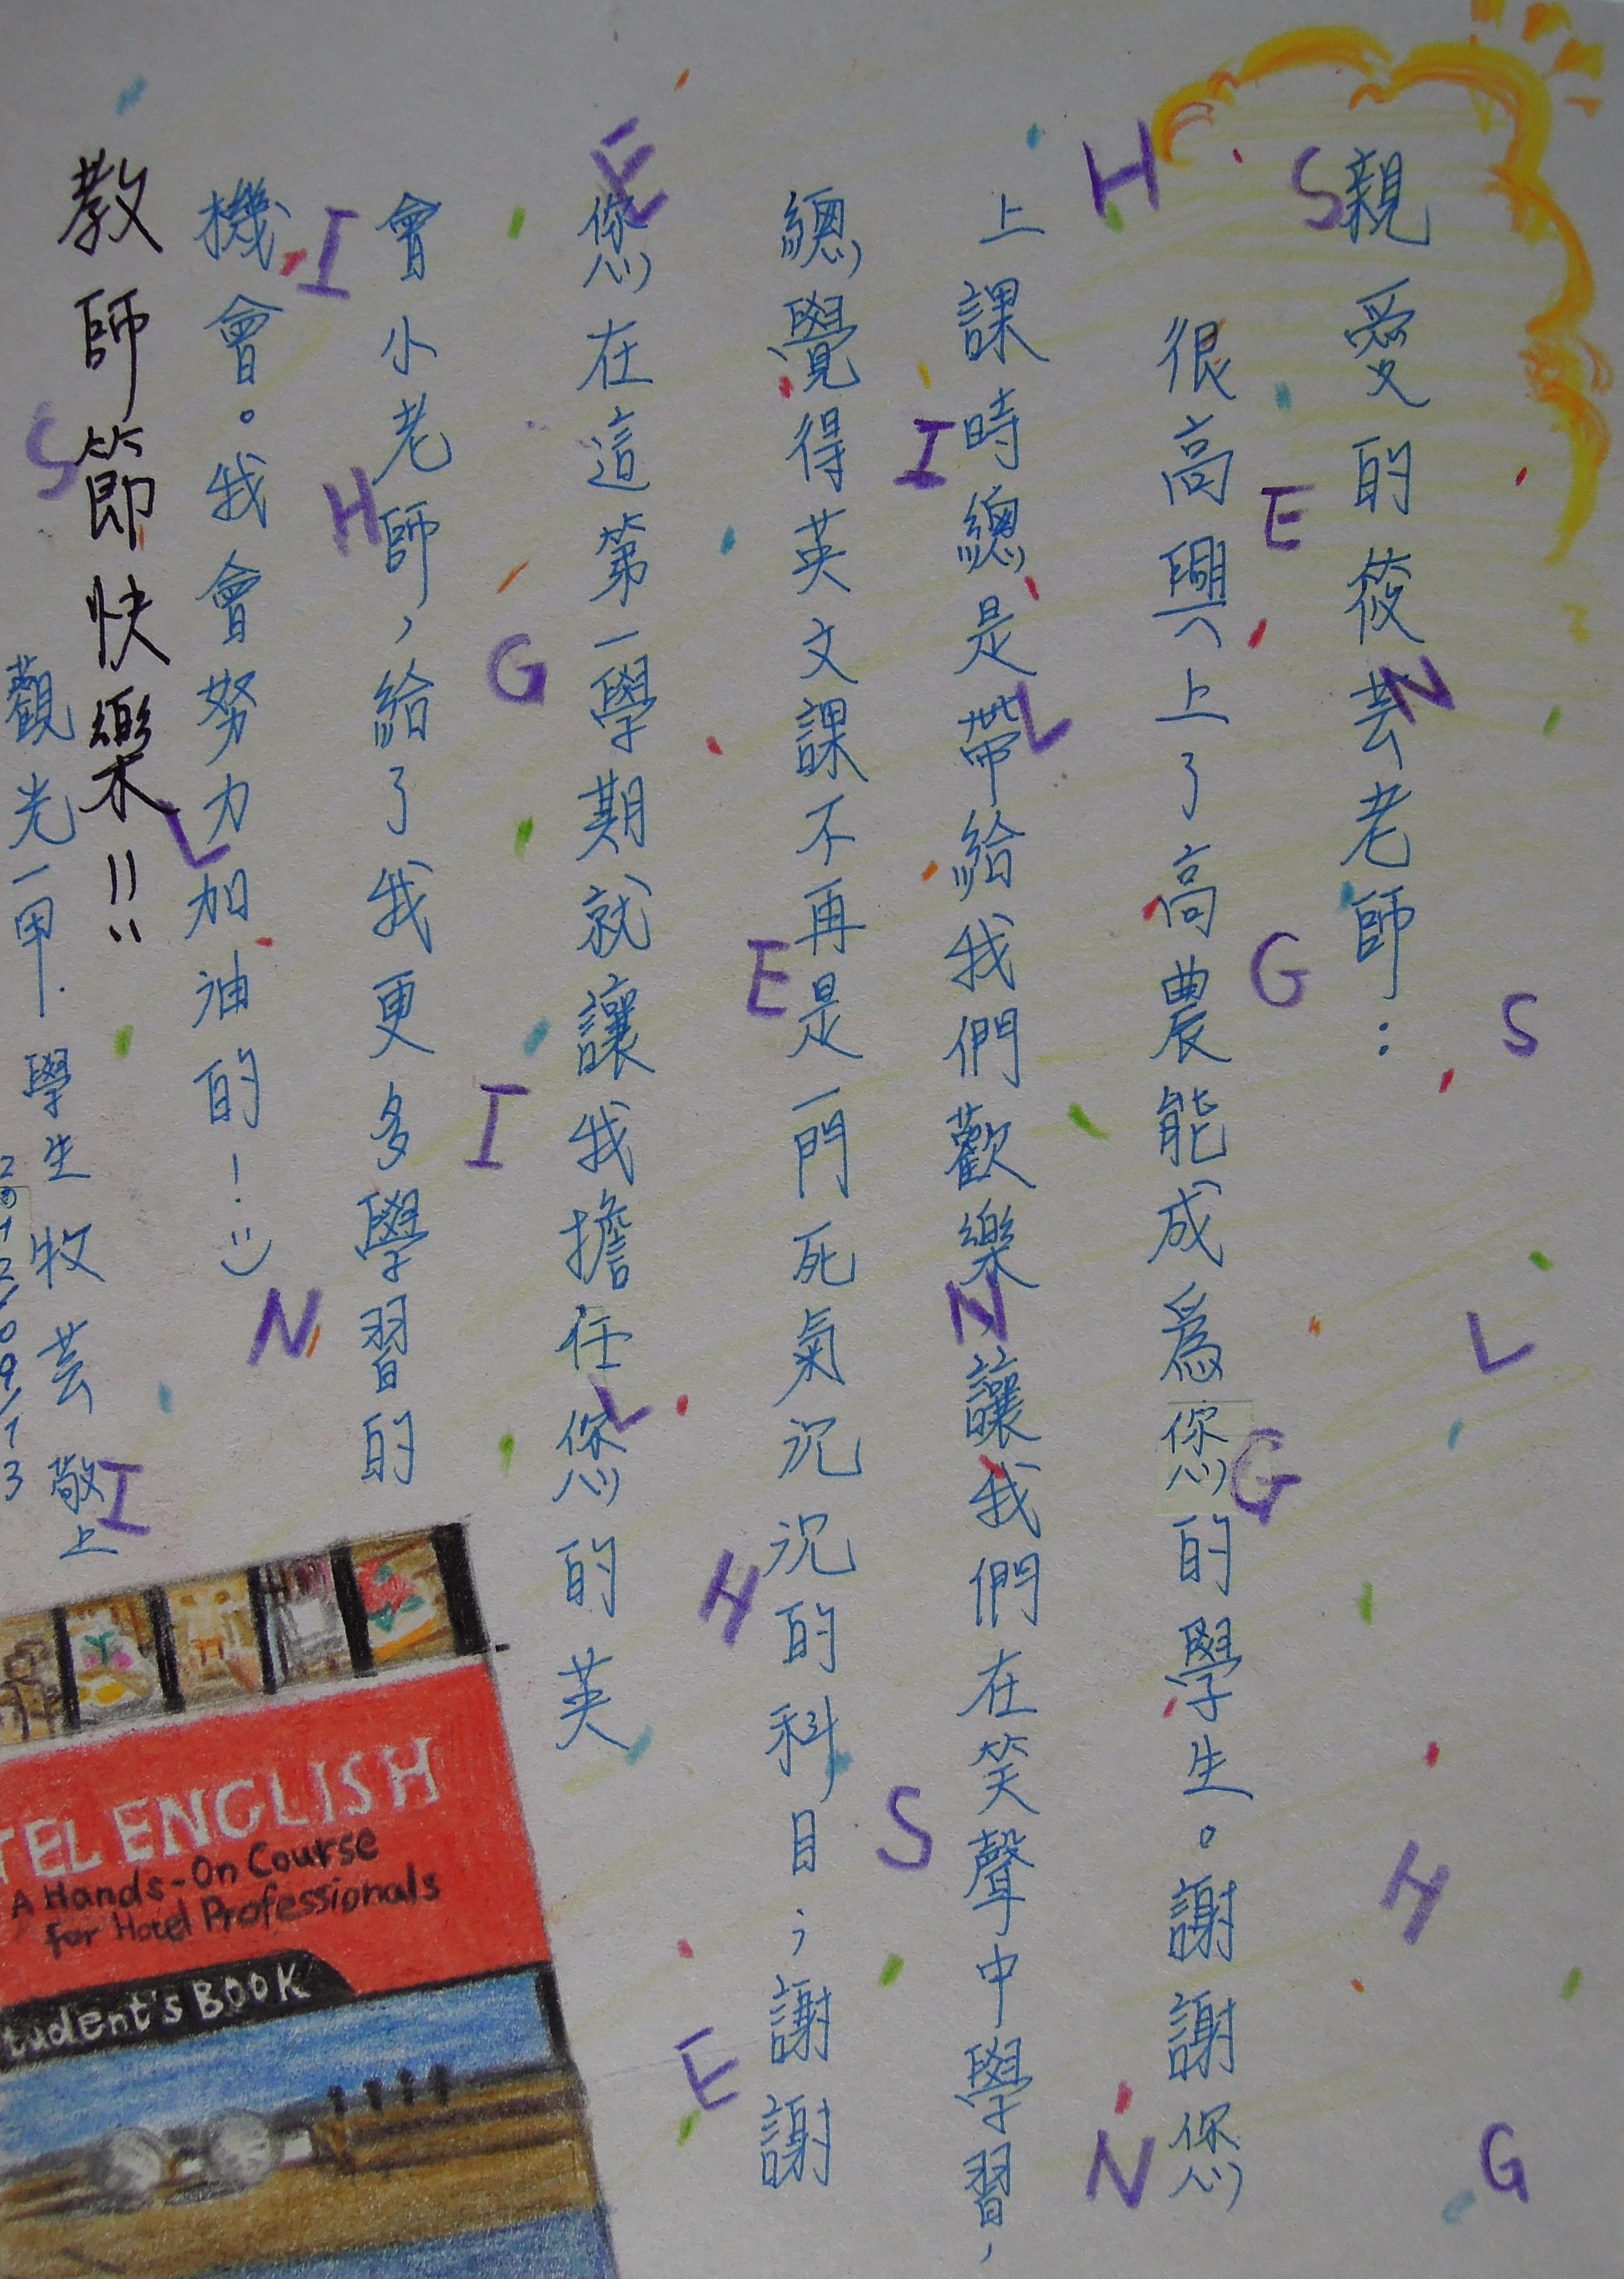 親愛的筱芸老師：
很高興上了高農能成為您的學生。謝謝您
上課時總是帶給我們歡樂，讓我們在笑聲中學習，
總覺得英文課不再是一門死氣沉沉的科目；謝謝
您在這第一學期就讓我擔任您的英
會小老師，給了我更多學習的
機會。我會努力加油的！:)
教師節快樂!!
觀光一甲. 學生 牧芸 敬上
2012/09/13
TEL ENGLISH
A Hands-On Course
for Hotel Professionals
tudent's BOOK
S
H
E
I
E
I
N
L
H
S
G
G
E
L
S
I
L
N
N
G
L
I
H
S
H
E
N
G